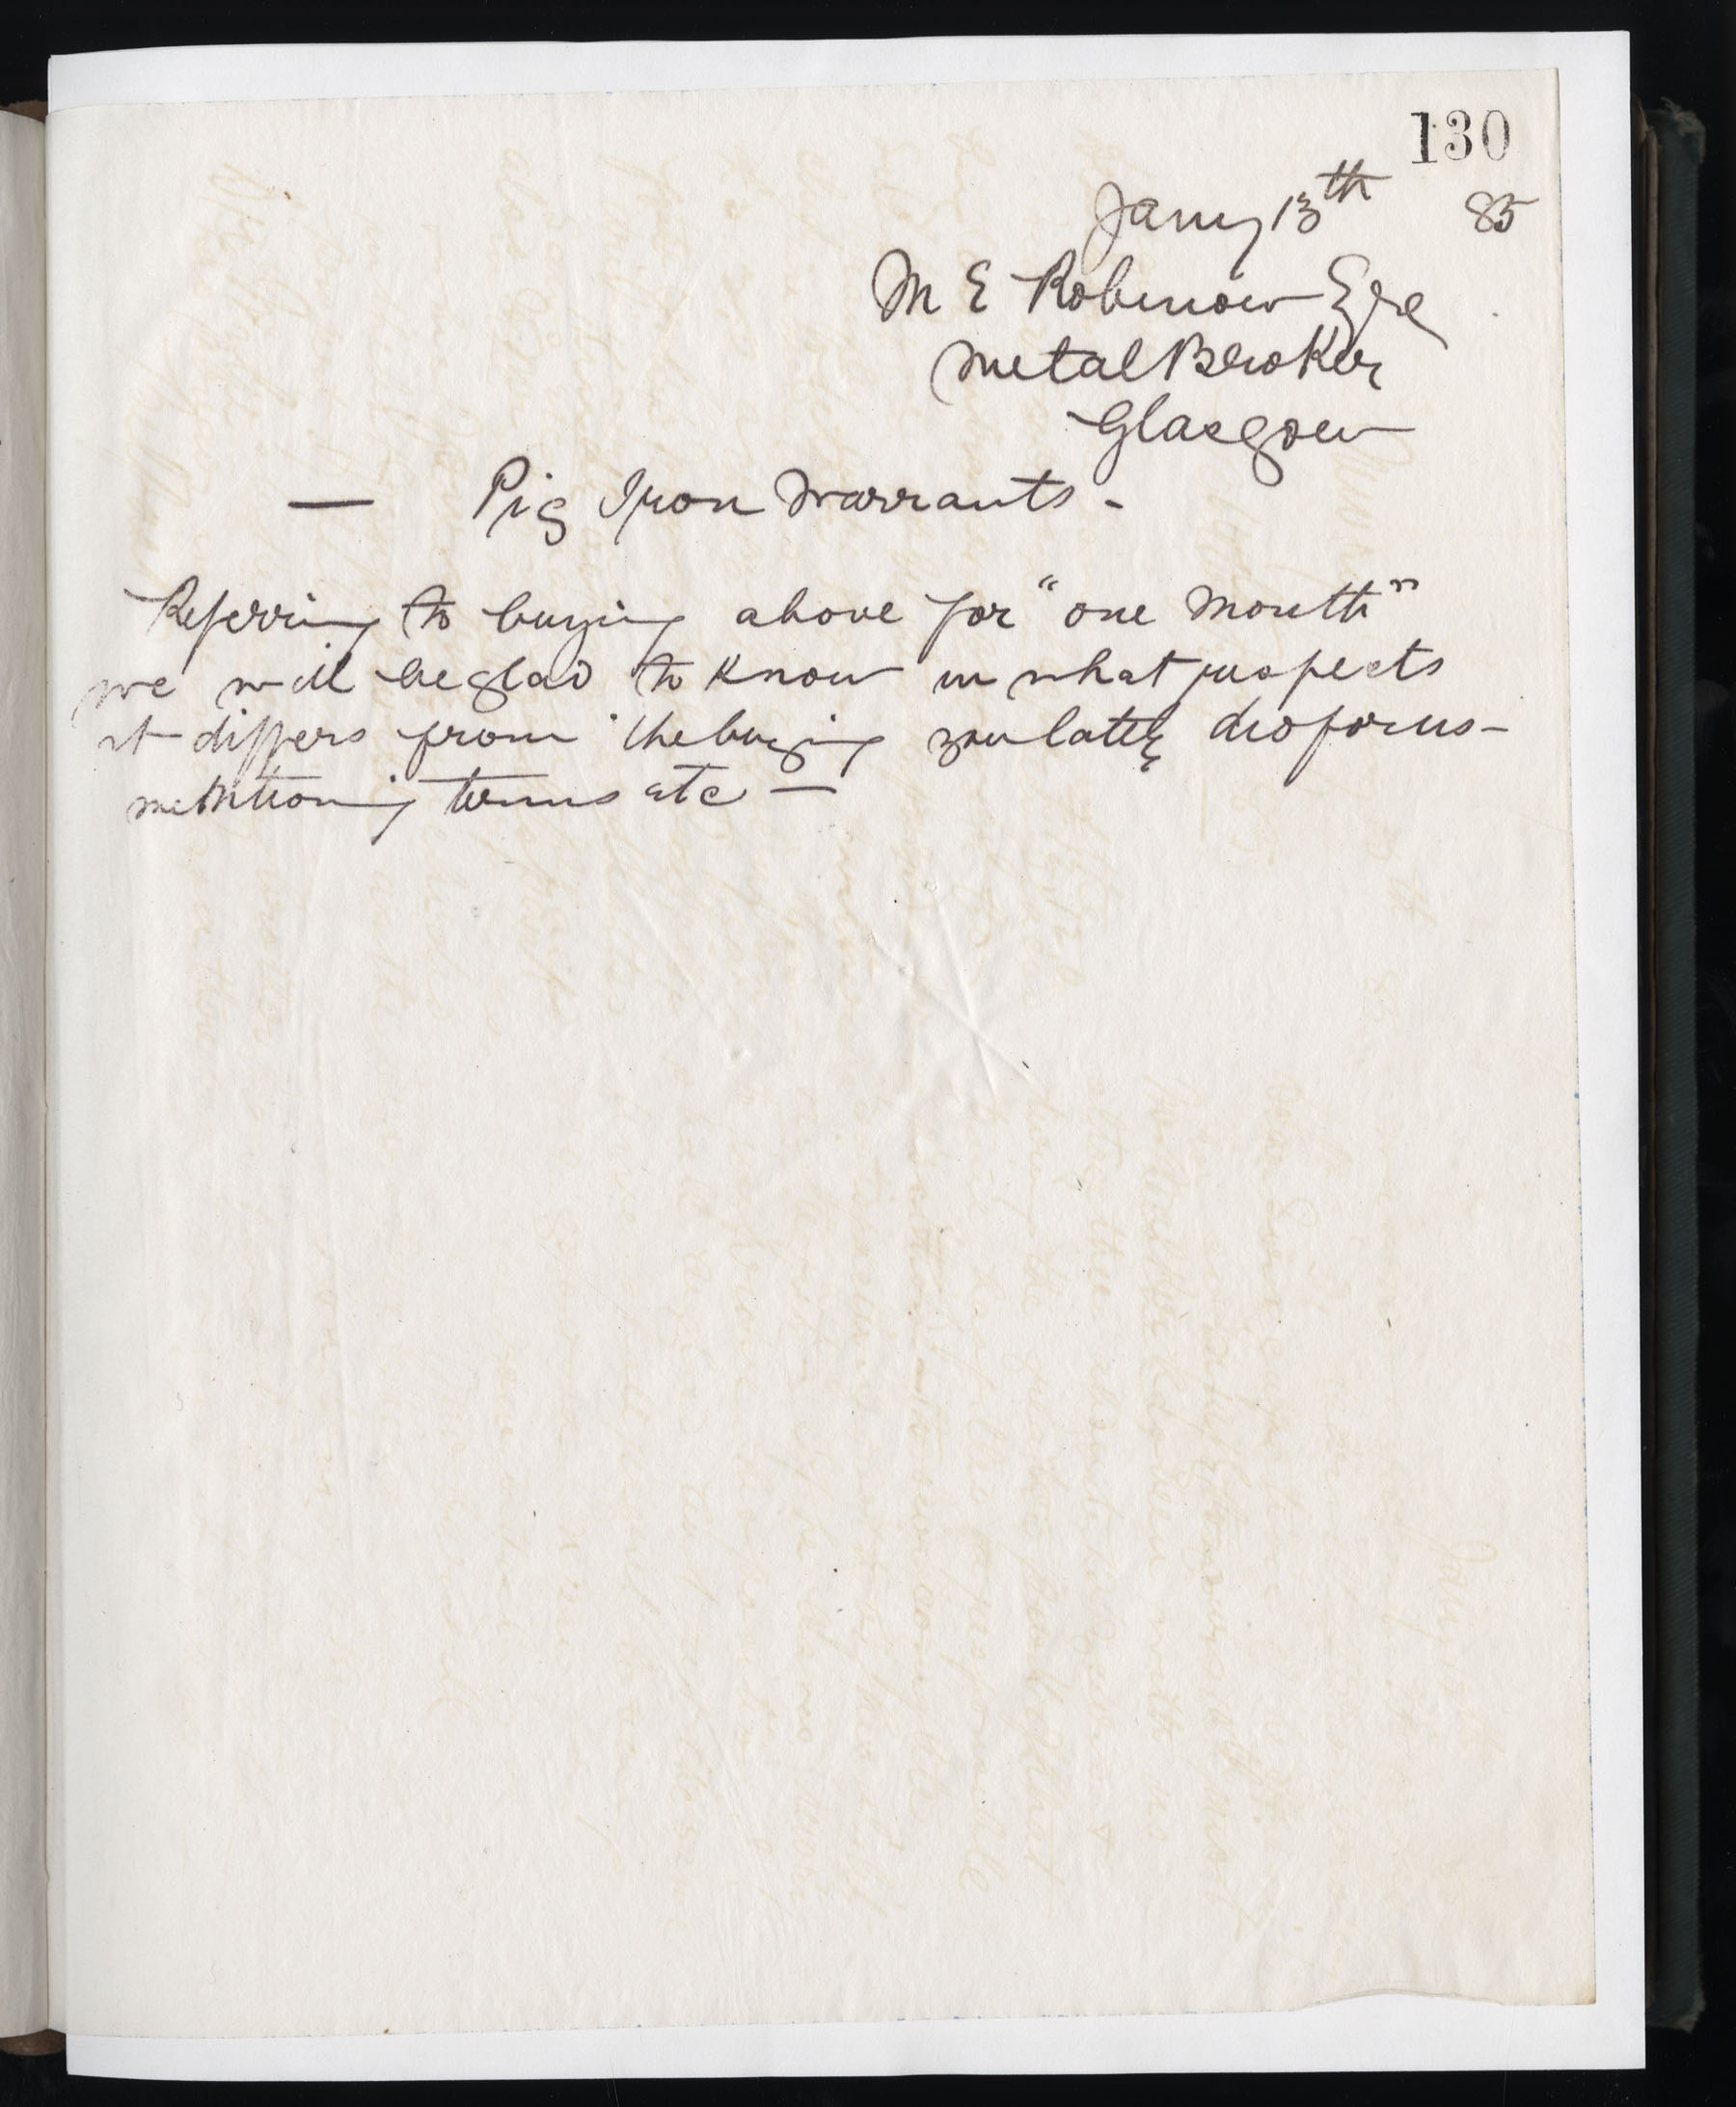 130
Jany 13th 85
M E Robinow Esqe
Metal Broker
Glasgow
— Pig Iron Warrants -
Referring to buying above for "one month"
we will be glad to know in what respects
it differs from the buying you lately dis for us -
mentioning terms etc —